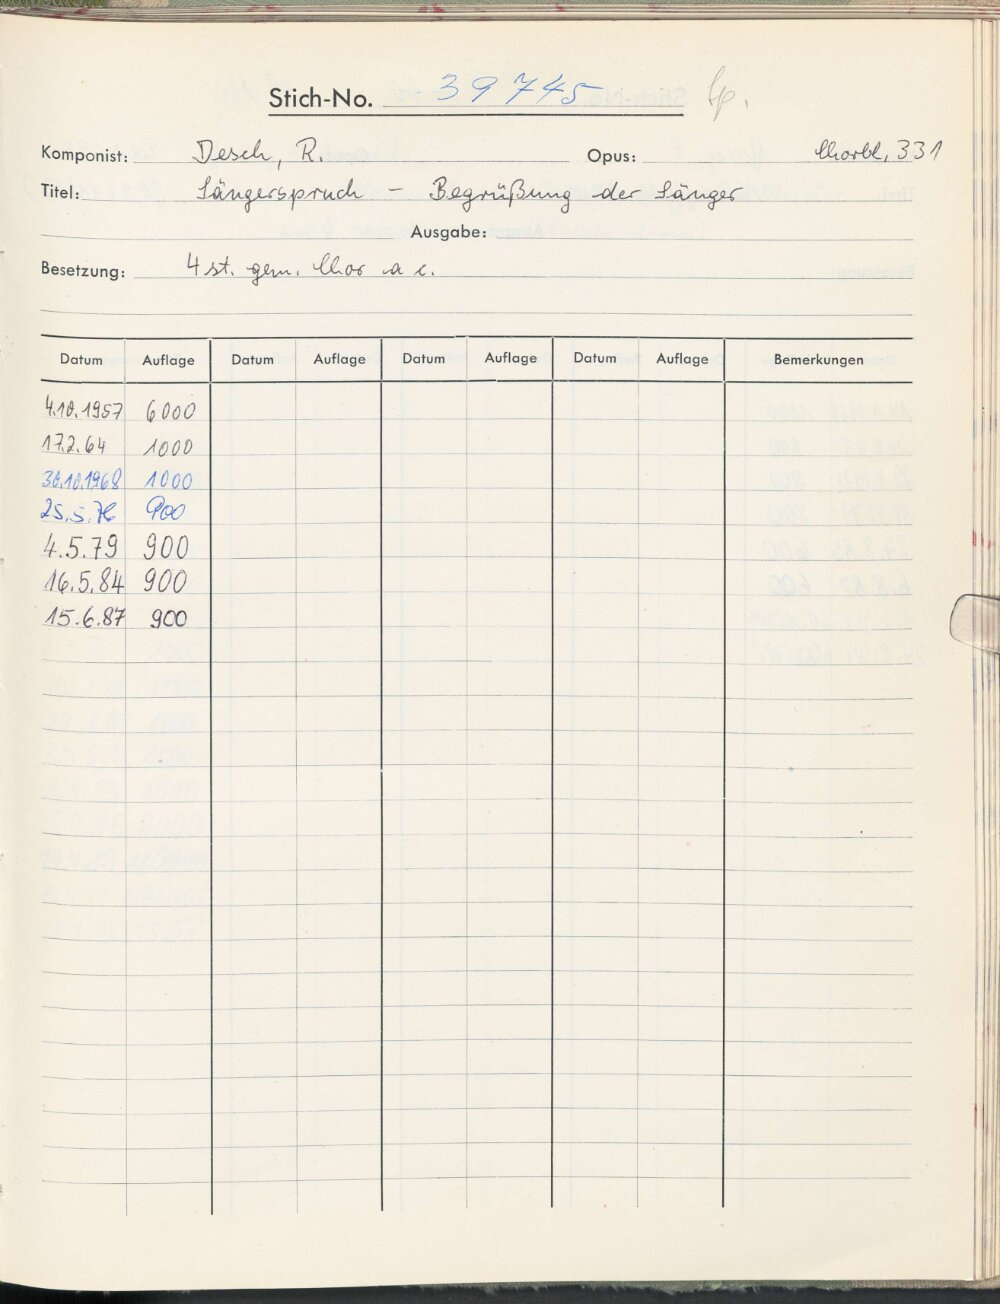 Stich-No. 39745 Lp.
Komponist: Desch, R. Opus: Chorbl. 331
Titel: Sängerspruch – Begrüßung der Sänger
Ausgabe:
Besetzung: 4 st. gem. Chor a c.
Datum Auflage Datum Auflage Datum Auflage Datum Auflage Bemerkungen
4.10.1957 6000
17.2.64 1000
30.10.1968 1000
25.5.76 900
4.5.79 900
16.5.84 900
15.6.87 900